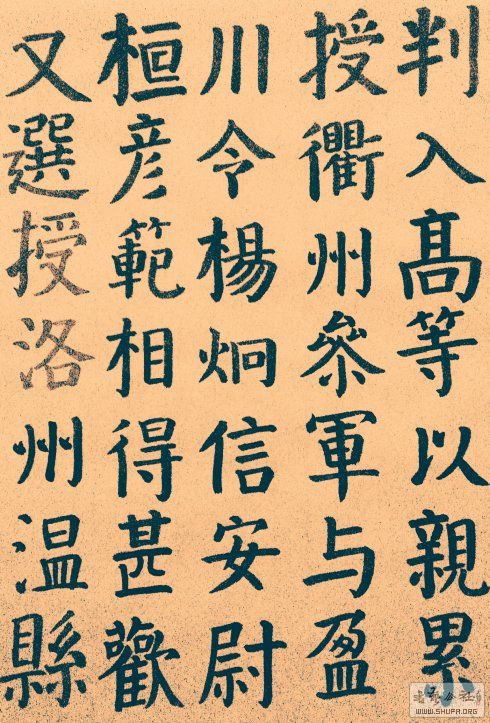 判入高等以親累
授衢州參軍与盈
川令楊炯信安尉
桓彦範相得甚歡
又選授洛州温縣
WWW.SHUFA.ORG